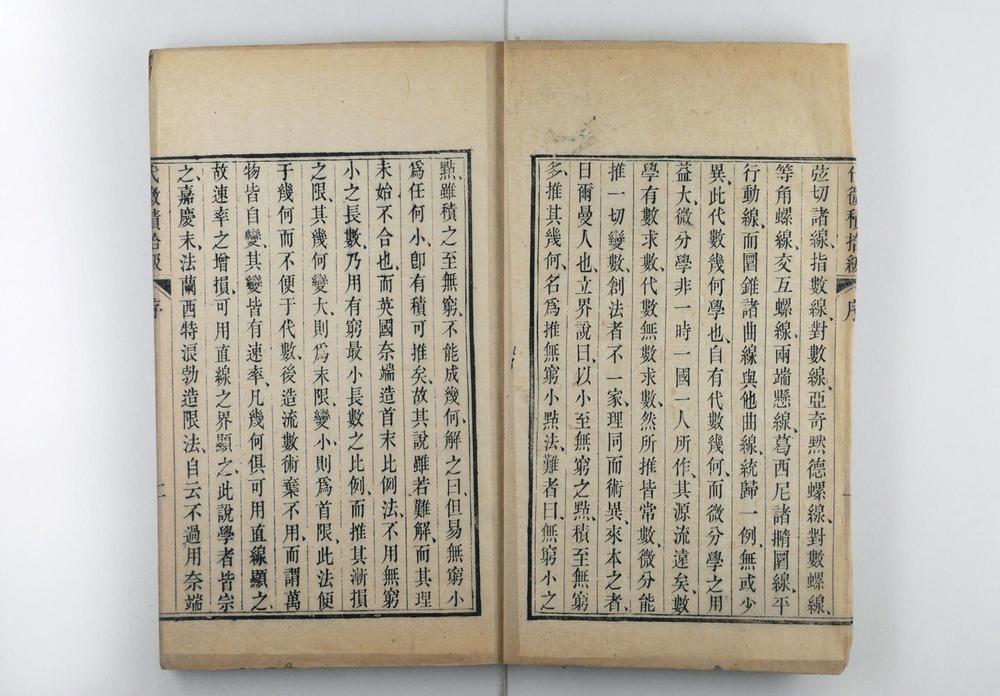 代微積拾級 序 一
弦切諸線、指數線、對數線、亞奇黙德螺線、對數螺線、
等角螺線、交互螺線、兩端懸線、葛西尼諸撱圜線、平
行動線、而圜錐諸曲線與他曲線、統歸一例、無或少
異、此代數幾何學也、自有代數幾何、而微分學之用
益大、微分學非一時一國一人所作、其源流遠矣、數
學有數求數、代數無數求數、然所推皆常數、微分能
推一切變數、創法者不一家、理同而術異、來本之者、
日爾曼人也、立界說曰、以小至無窮之㸃、積至無窮
多、推其幾何、名爲推無窮小㸃法、難者曰、無窮小之
㸃、雖積之至無窮、不能成幾何、解之曰、但易無窮小
爲任何小、卽有積可推矣、故其說雖若難解、而其理
未始不合也、而英國奈端造首末比例法、不用無窮
小之長數、乃用有窮最小長數之比例、而推其漸損
之限、其幾何變大、則爲末限、變小、則爲首限、此法便
于幾何、而不便于代數、後造流數術、棄不用、而謂萬
物皆自變、其變皆有速率、凡幾何俱可用直線顯之、
故速率之增損、可用直線之界顯之、此說學者皆宗
之、嘉慶末、法蘭西特浪勃造限法、自云不過用奈端
代微積拾級 序 二